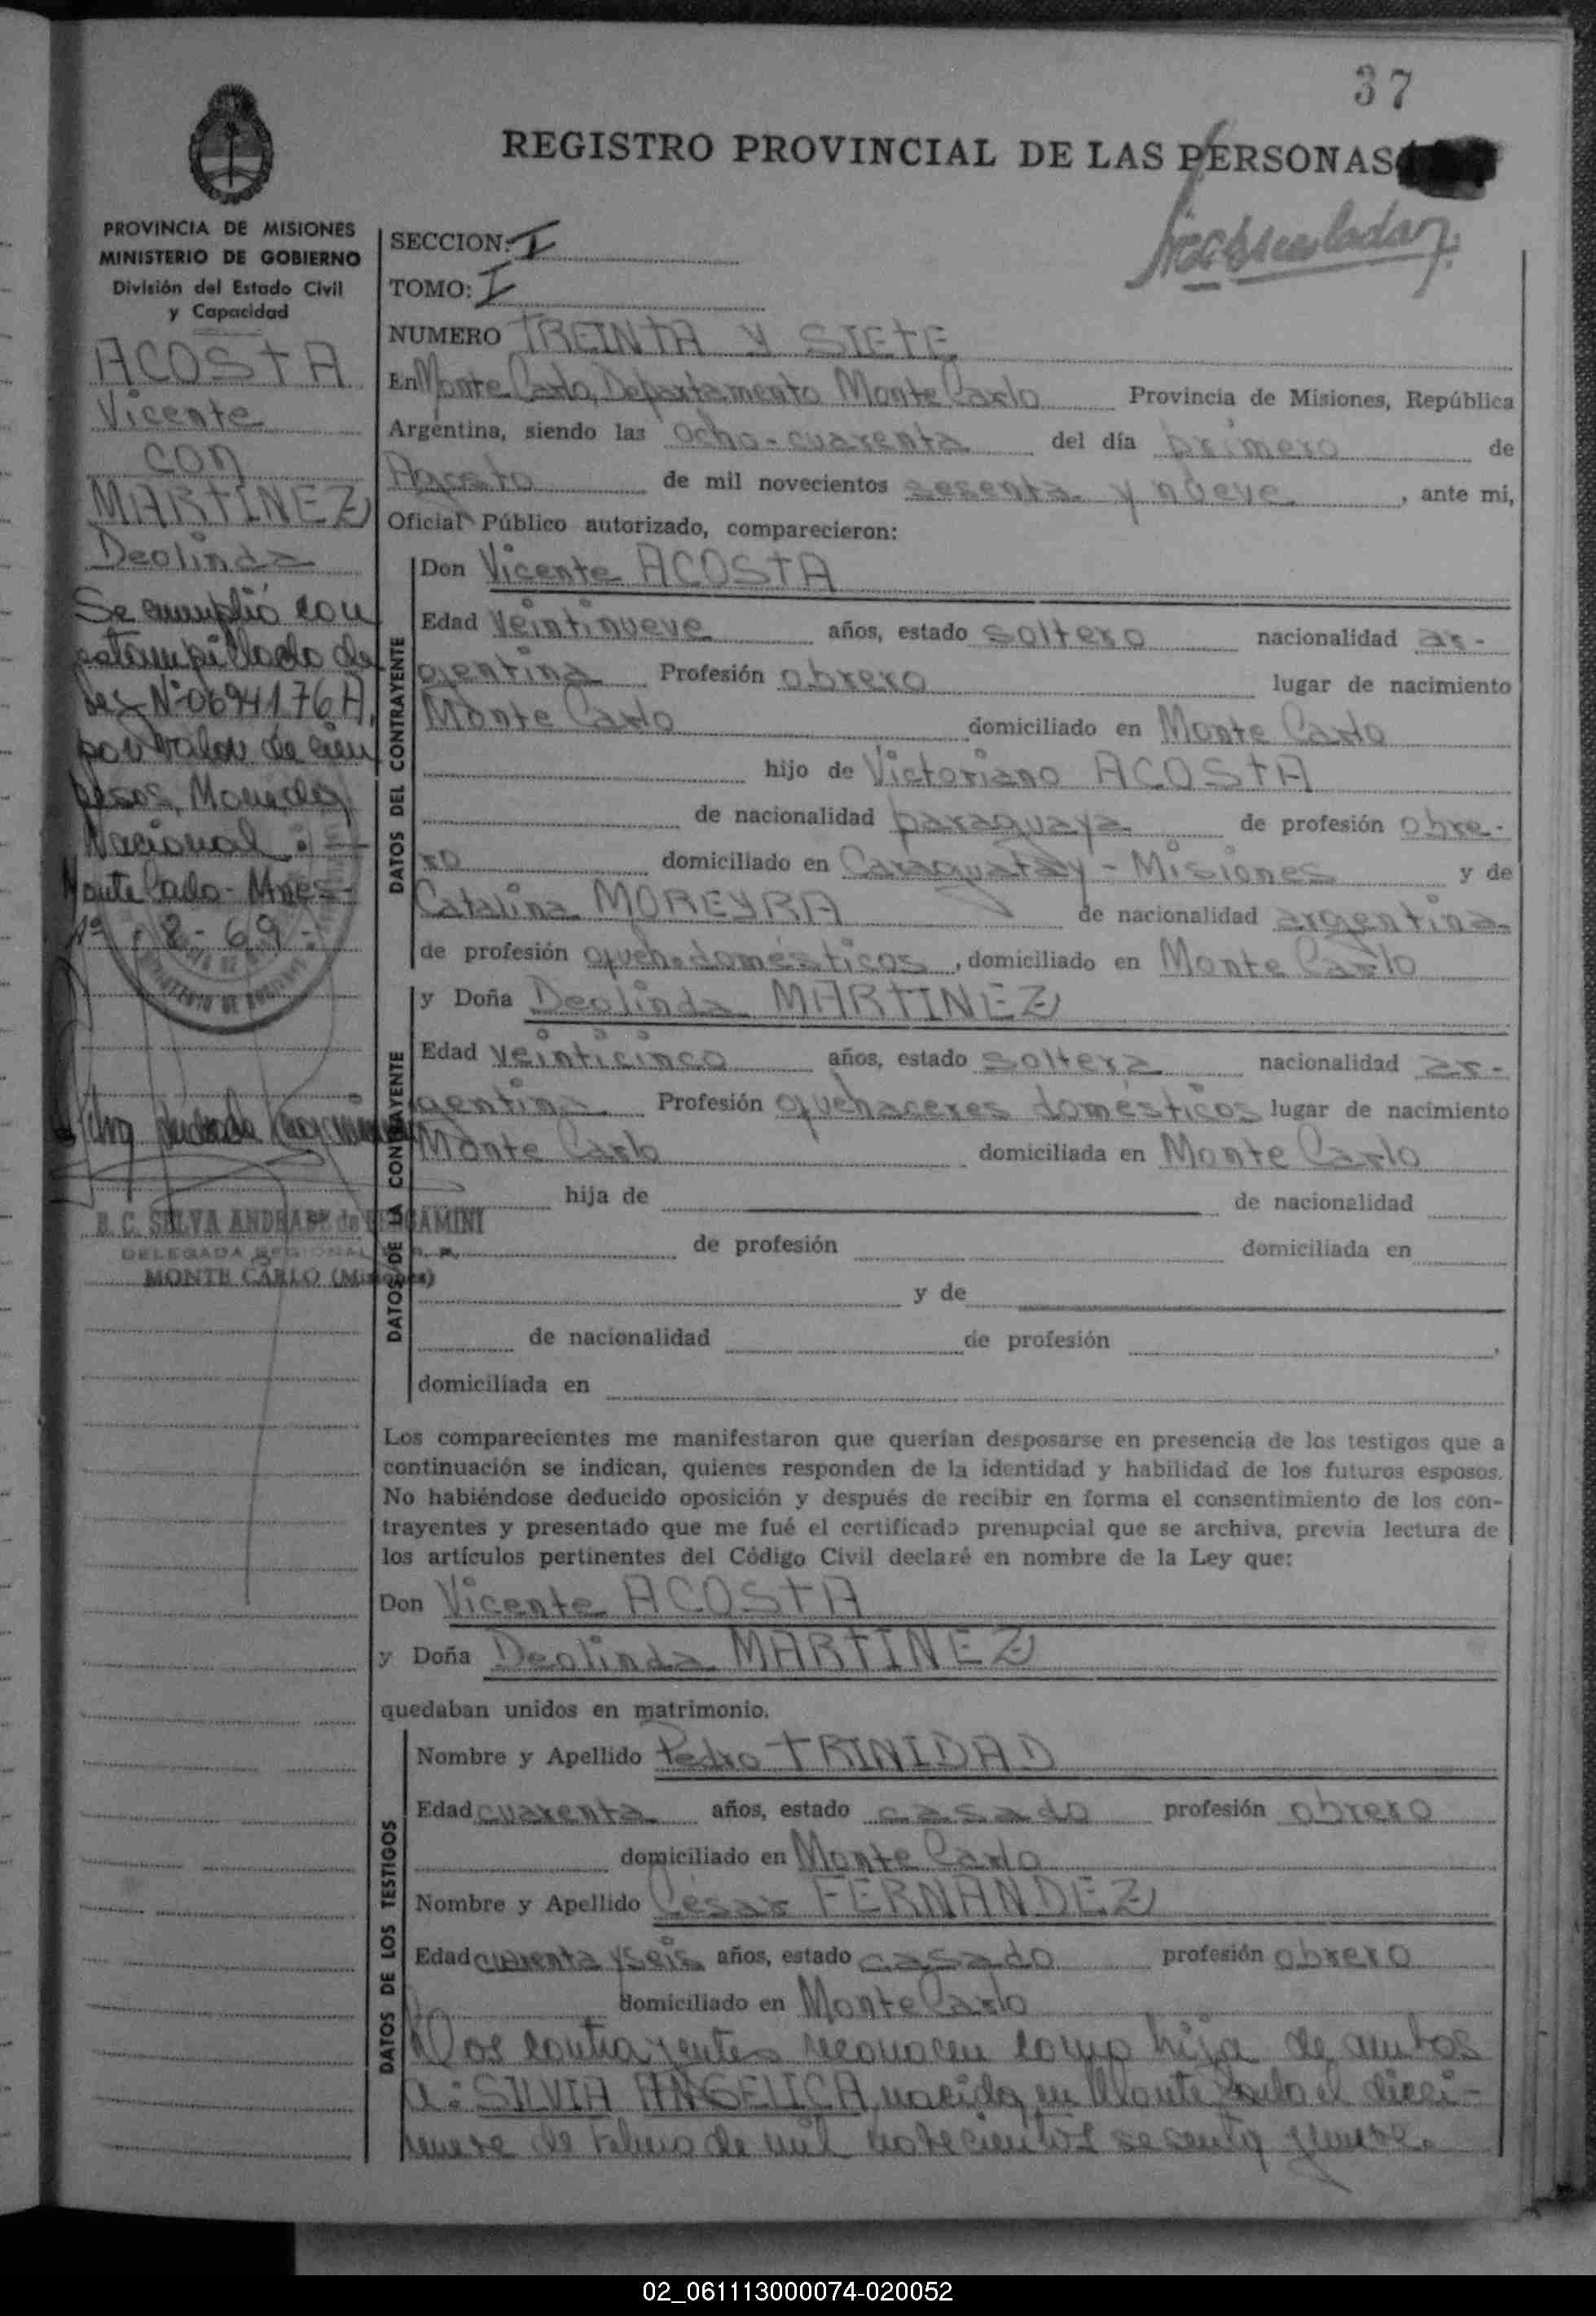 37
REGISTRO PROVINCIAL DE LAS PERSONAS
PROVINCIA DE MISIONES
MINISTERIO DE GOBIERNO
División del Estado Civil
y Capacidad
ACOSTA
Vicente
con
MARTINEZ
Deolinda
Se cumplió con
estampillado de
ley Nº 0694176 A,
por valor de cien
pesos, Moneda
Nacional.
Monte Carlo - Mnes -
1º - 8 - 69 -
B. C. SILVA ANDRADE de BERGAMINI
DELEGADA REGIONAL
MONTE CARLO (Misiones)
SECCION: I
TOMO: I
NUMERO TREINTA Y SIETE
En Monte Carlo, Departamento Monte Carlo Provincia de Misiones, República
Argentina, siendo las ocho-cuarenta del día primero de
Agosto de mil novecientos sesenta y nueve, ante mi,
Oficial Público autorizado, comparecieron:
DATOS DEL CONTRAYENTE
Don Vicente ACOSTA
Edad veintinueve años, estado soltero nacionalidad ar-
gentina Profesión obrero lugar de nacimiento
Monte Carlo domiciliado en Monte Carlo
hijo de Victoriano ACOSTA
de nacionalidad paraguaya de profesión obre-
ro domiciliado en Caraguatay - Misiones y de
Catalina MOREYRA de nacionalidad argentina
de profesión queh. domésticos, domiciliado en Monte Carlo
DATOS DE LA CONTRAYENTE
y Doña Deolinda MARTINEZ
Edad veinticinco años, estado soltera nacionalidad ar-
gentina Profesión quehaceres domésticos lugar de nacimiento
Monte Carlo domiciliada en Monte Carlo
hija de de nacionalidad
de profesión domiciliada en
y de
de nacionalidad de profesión ,
domiciliada en
Los comparecientes me manifestaron que querían desposarse en presencia de los testigos que a
continuación se indican, quienes responden de la identidad y habilidad de los futuros esposos.
No habiéndose deducido oposición y después de recibir en forma el consentimiento de los con-
trayentes y presentado que me fué el certificado prenupcial que se archiva, previa lectura de
los artículos pertinentes del Código Civil declaré en nombre de la Ley que:
Don Vicente ACOSTA
y Doña Deolinda MARTINEZ
quedaban unidos en matrimonio.
DATOS DE LOS TESTIGOS
Nombre y Apellido Pedro TRINIDAD
Edad cuarenta años, estado casado profesión obrero
domiciliado en Monte Carlo
Nombre y Apellido César FERNANDEZ
Edad cuarenta y seis años, estado casado profesión obrero
domiciliado en Monte Carlo
Los contrayentes reconocen como hija de ambos
a: SILVIA ANGELICA, nacida en Monte Carlo el dieci-
nueve de Febrero de mil novecientos sesenta y nueve.
02_061113000074-020052